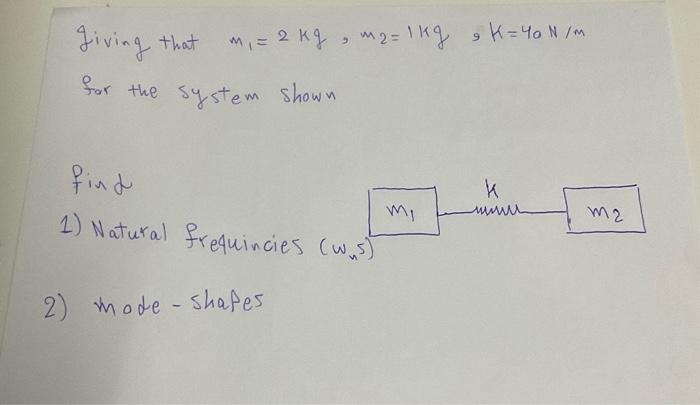 Jiving that m₁ = 2 kg , m2 = 1 kg , K = 40 N/m
for the system shown
find
1) Natural frequincies (wₙs)
2) mode - shapes
k
m₁
m2